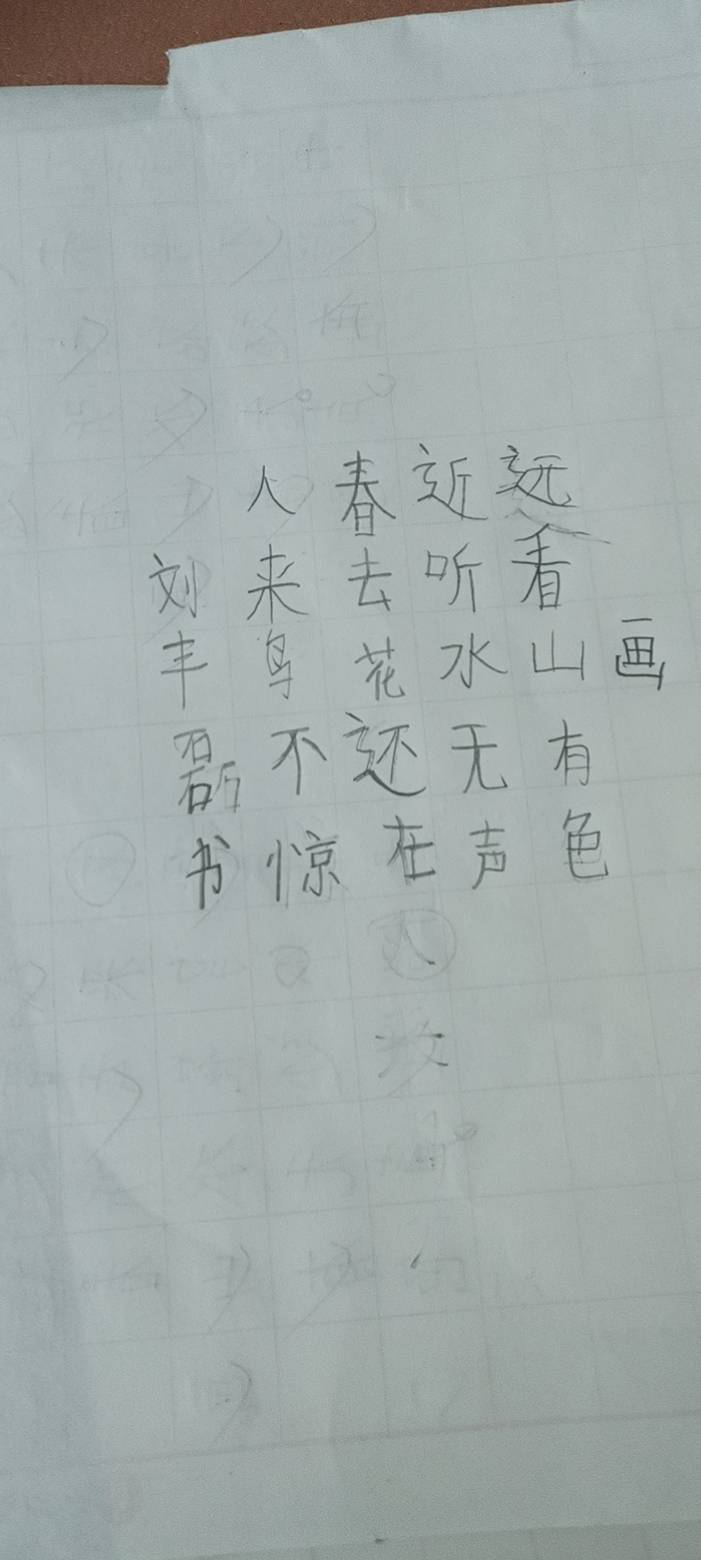 画
远看山有色
近听水无声
春去花还在
人来鸟不惊
刘丰磊书